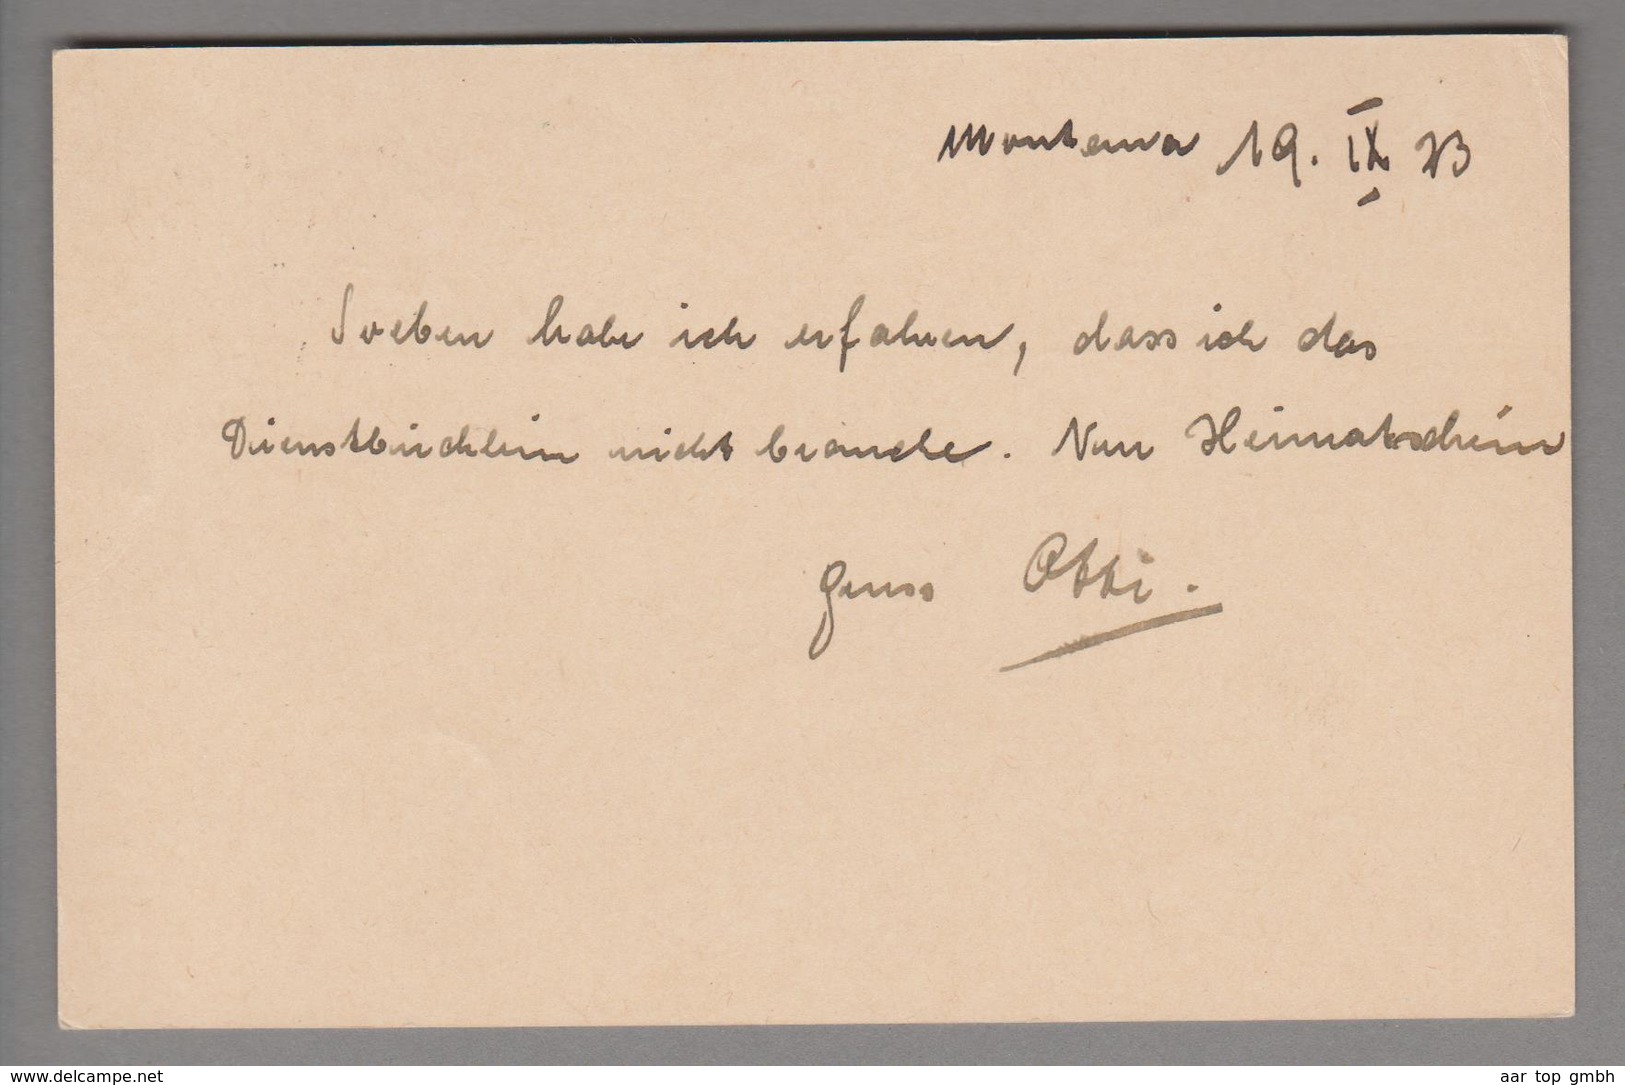 Montana 19. IX 23
Soeben habe ich erfahren, dass ich das
Dienstbüchlein nicht brauche. Nur Heimatschein
Gruss Otti.
www.delcampe.net
aar top gmbh